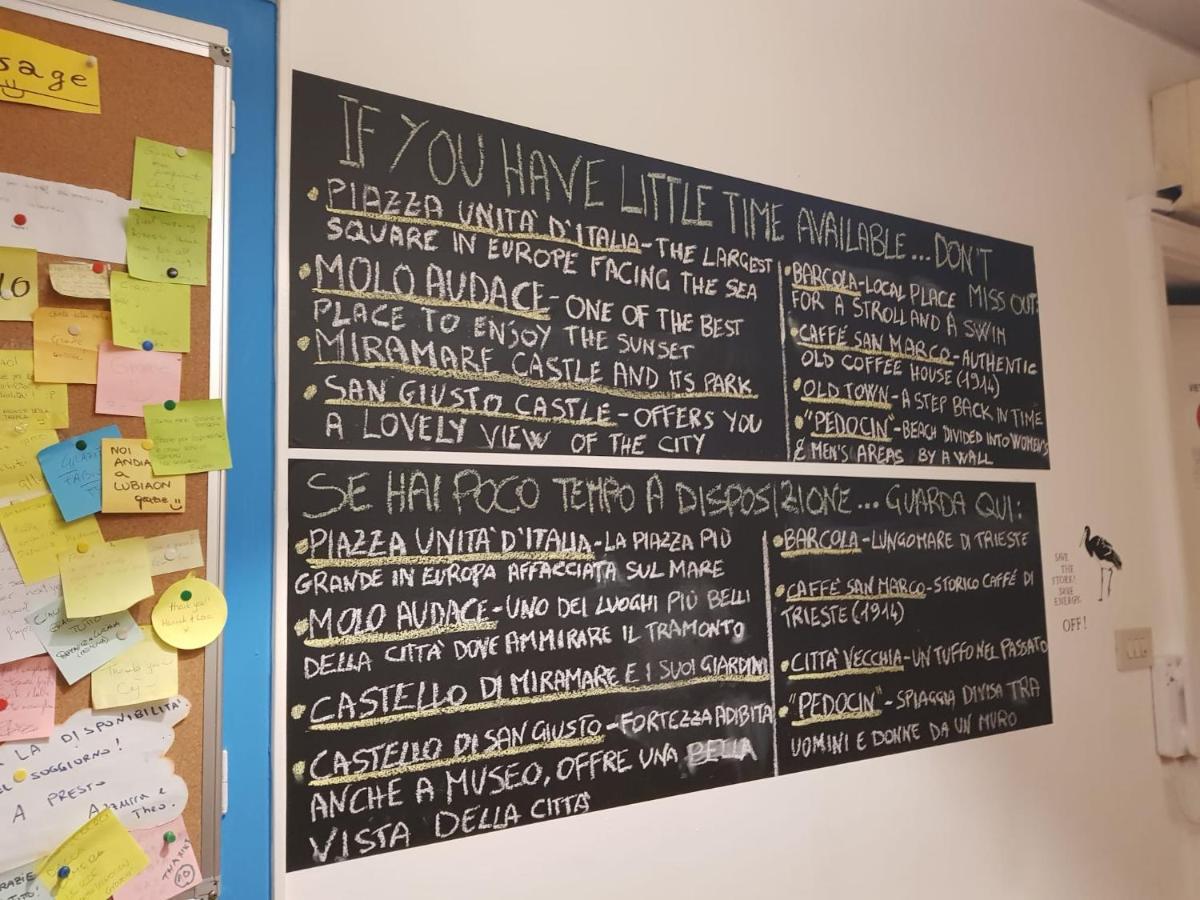 sage
NOI
ANDIAMO
a
LUBIAON
grazie
thank you!
LA DISPONIBILITA'
SOGGIORNO!
A PRESTO
Theo.
IF YOU HAVE LITTLE TIME AVAILABLE... DON'T
MISS OUT:
• PIAZZA UNITA' D'ITALIA - THE LARGEST
SQUARE IN EUROPE FACING THE SEA
• MOLO AUDACE - ONE OF THE BEST
PLACE TO ENJOY THE SUNSET
• MIRAMARE CASTLE AND ITS PARK
• SAN GIUSTO CASTLE - OFFERS YOU
A LOVELY VIEW OF THE CITY
• BARCOLA - LOCAL PLACE
FOR A STROLL AND A SWIM
• CAFFÉ SAN MARCO - AUTHENTIC
OLD COFFEE HOUSE (1914)
• OLD TOWN - A STEP BACK IN TIME
• "PEDOCIN" - BEACH DIVIDED INTO WOMEN'S
& MEN'S AREAS BY A WALL
SE HAI POCO TEMPO A DISPOSIZIONE... GUARDA QUI:
• PIAZZA UNITA' D'ITALIA - LA PIAZZA PIÙ
GRANDE IN EUROPA AFFACCIATA SUL MARE
• MOLO AUDACE - UNO DEI LUOGHI PIÙ BELLI
DELLA CITTÀ DOVE AMMIRARE IL TRAMONTO
• CASTELLO DI MIRAMARE E I SUOI GIARDINI
• CASTELLO DI SAN GIUSTO - FORTEZZA ADIBITA
ANCHE A MUSEO, OFFRE UNA BELLA
VISTA DELLA CITTÀ
• BARCOLA - LUNGOMARE DI TRIESTE
• CAFFÉ SAN MARCO - STORICO CAFFÉ DI
TRIESTE (1914)
• CITTÀ VECCHIA - UN TUFFO NEL PASSATO
• "PEDOCIN" - SPIAGGIA DIVISA TRA
UOMINI E DONNE DA UN MURO
SAVE
THE
STORK!
SAVE
ENERGY.
OFF!